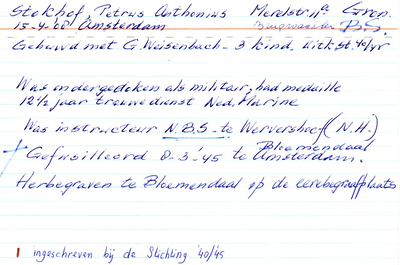 Stokhof, Petrus Anthonius Merelstr. 11a Gron.
15-4-00 Amsterdam B.S.
Gehuwd met G. Weisenbach - 3 kind. Uitk. st. 40/45
Was ondergedoken als militair, had medaille
12½ jaar trouwe dienst Ned. Marine
Was instructeur N.B.S. te Wervershoef (N.H.)
Gefusilleerd 8-3-'45 te Bloemendaal Amsterdam.
Herbegraven te Bloemendaal op de eerebegraafplaats
ingeschreven bij de Stichting '40/'45